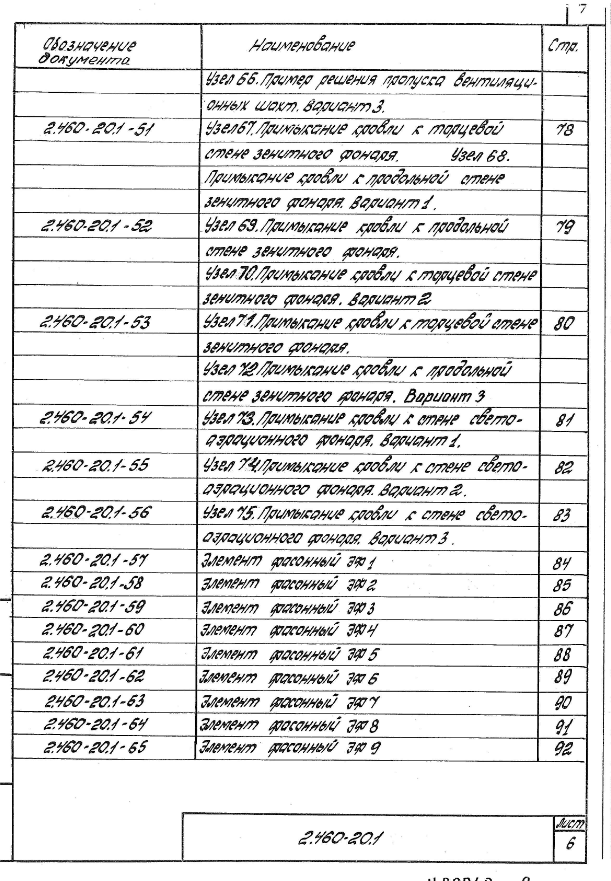 7
Обозначение документа Наименование Стр.
Узел 66. Пример решения пропуска вентиляци-
онных шахт. Вариант 3.
2.460-20.1-51 Узел 67. Примыкание кровли к торцевой 78
стене зенитного фонаря. Узел 68.
Примыкание кровли к продольной стене
зенитного фонаря. Вариант 1.
2.460-20.1-52 Узел 69. Примыкание кровли к продольной 79
стене зенитного фонаря.
Узел 70. Примыкание кровли к торцевой стене
зенитного фонаря. Вариант 2
2.460-20.1-53 Узел 71. Примыкание кровли к торцевой стене 80
зенитного фонаря.
Узел 72. Примыкание кровли к продольной
стене зенитного фонаря. Вариант 3
2.460-20.1-54 Узел 73. Примыкание кровли к стене свето- 81
аэрационного фонаря. Вариант 1.
2.460-20.1-55 Узел 74. Примыкание кровли к стене свето- 82
аэрационного фонаря. Вариант 2.
2.460-20.1-56 Узел 75. Примыкание кровли к стене свето- 83
аэрационного фонаря. Вариант 3.
2.460-20.1-57 Элемент фасонный ЭФ 1 84
2.460-20.1-58 Элемент фасонный ЭФ 2 85
2.460-20.1-59 Элемент фасонный ЭФ 3 86
2.460-20.1-60 Элемент фасонный ЭФ 4 87
2.460-20.1-61 Элемент фасонный ЭФ 5 88
2.460-20.1-62 Элемент фасонный ЭФ 6 89
2.460-20.1-63 Элемент фасонный ЭФ 7 90
2.460-20.1-64 Элемент фасонный ЭФ 8 91
2.460-20.1-65 Элемент фасонный ЭФ 9 92
2.460-20.1 Лист
6